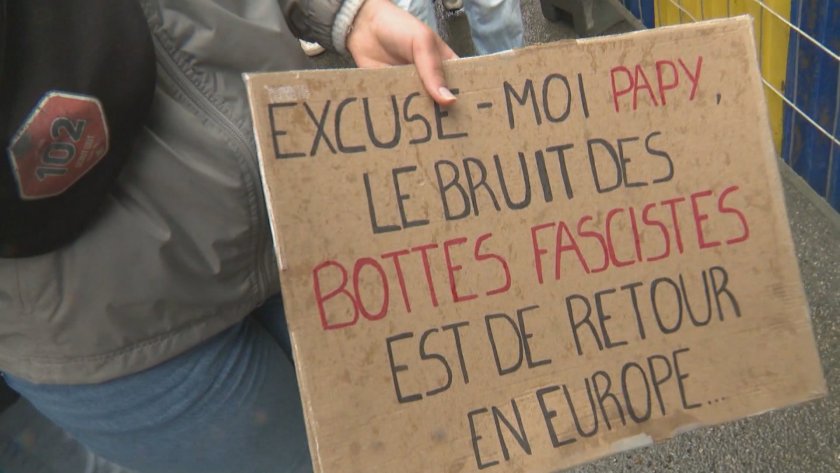 EXCUSE-MOI PAPY,
LE BRUIT DES
BOTTES FASCISTES
EST DE RETOUR
EN EUROPE...
102